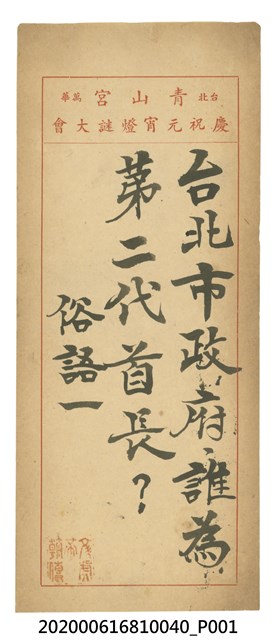 台北青山宮萬華
慶祝元宵燈謎大會
台北市政府誰為
第二代首長？
俗語一
202000616810040_P001